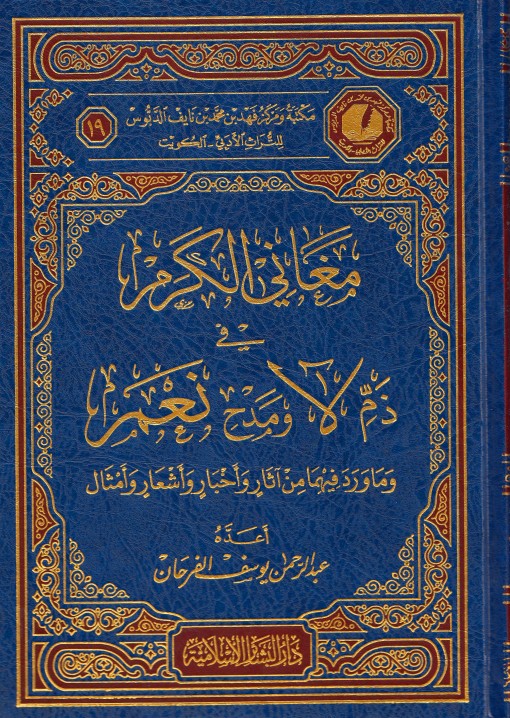 مَكتَبَةُ وَمَركَزُ فَهْد بْن مُحَمَّد بْن نَايف الدَّبُّوس
للتُّرَاثِ الأَدَبيّ - الكُوَيت
١٩
مَغَاني الكَرَمِ
في
ذَمِّ لَا وَمَدْحِ نَعَمْ
وَمَا وَرَدَ فِيهِمَا مِنْ آثَارٍ وَأَخْبَارٍ وَأَشْعَارٍ وَأَمْثَال
أَعَدَّهُ
عبد الرَّحمن يوسف الفرحان
دَارُ البَشَائِر الإِسْلَامِيَّة